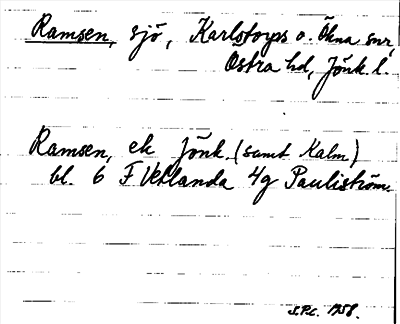 Ramsen, sjö, Karlstorps o. Ökna snr,
Östra hd, Jönk. l.
Ramsen, ek Jönk. (samt Kalm)
bl. 6 F Vetlanda 4g Pauliström.
S.P.L. 1958.